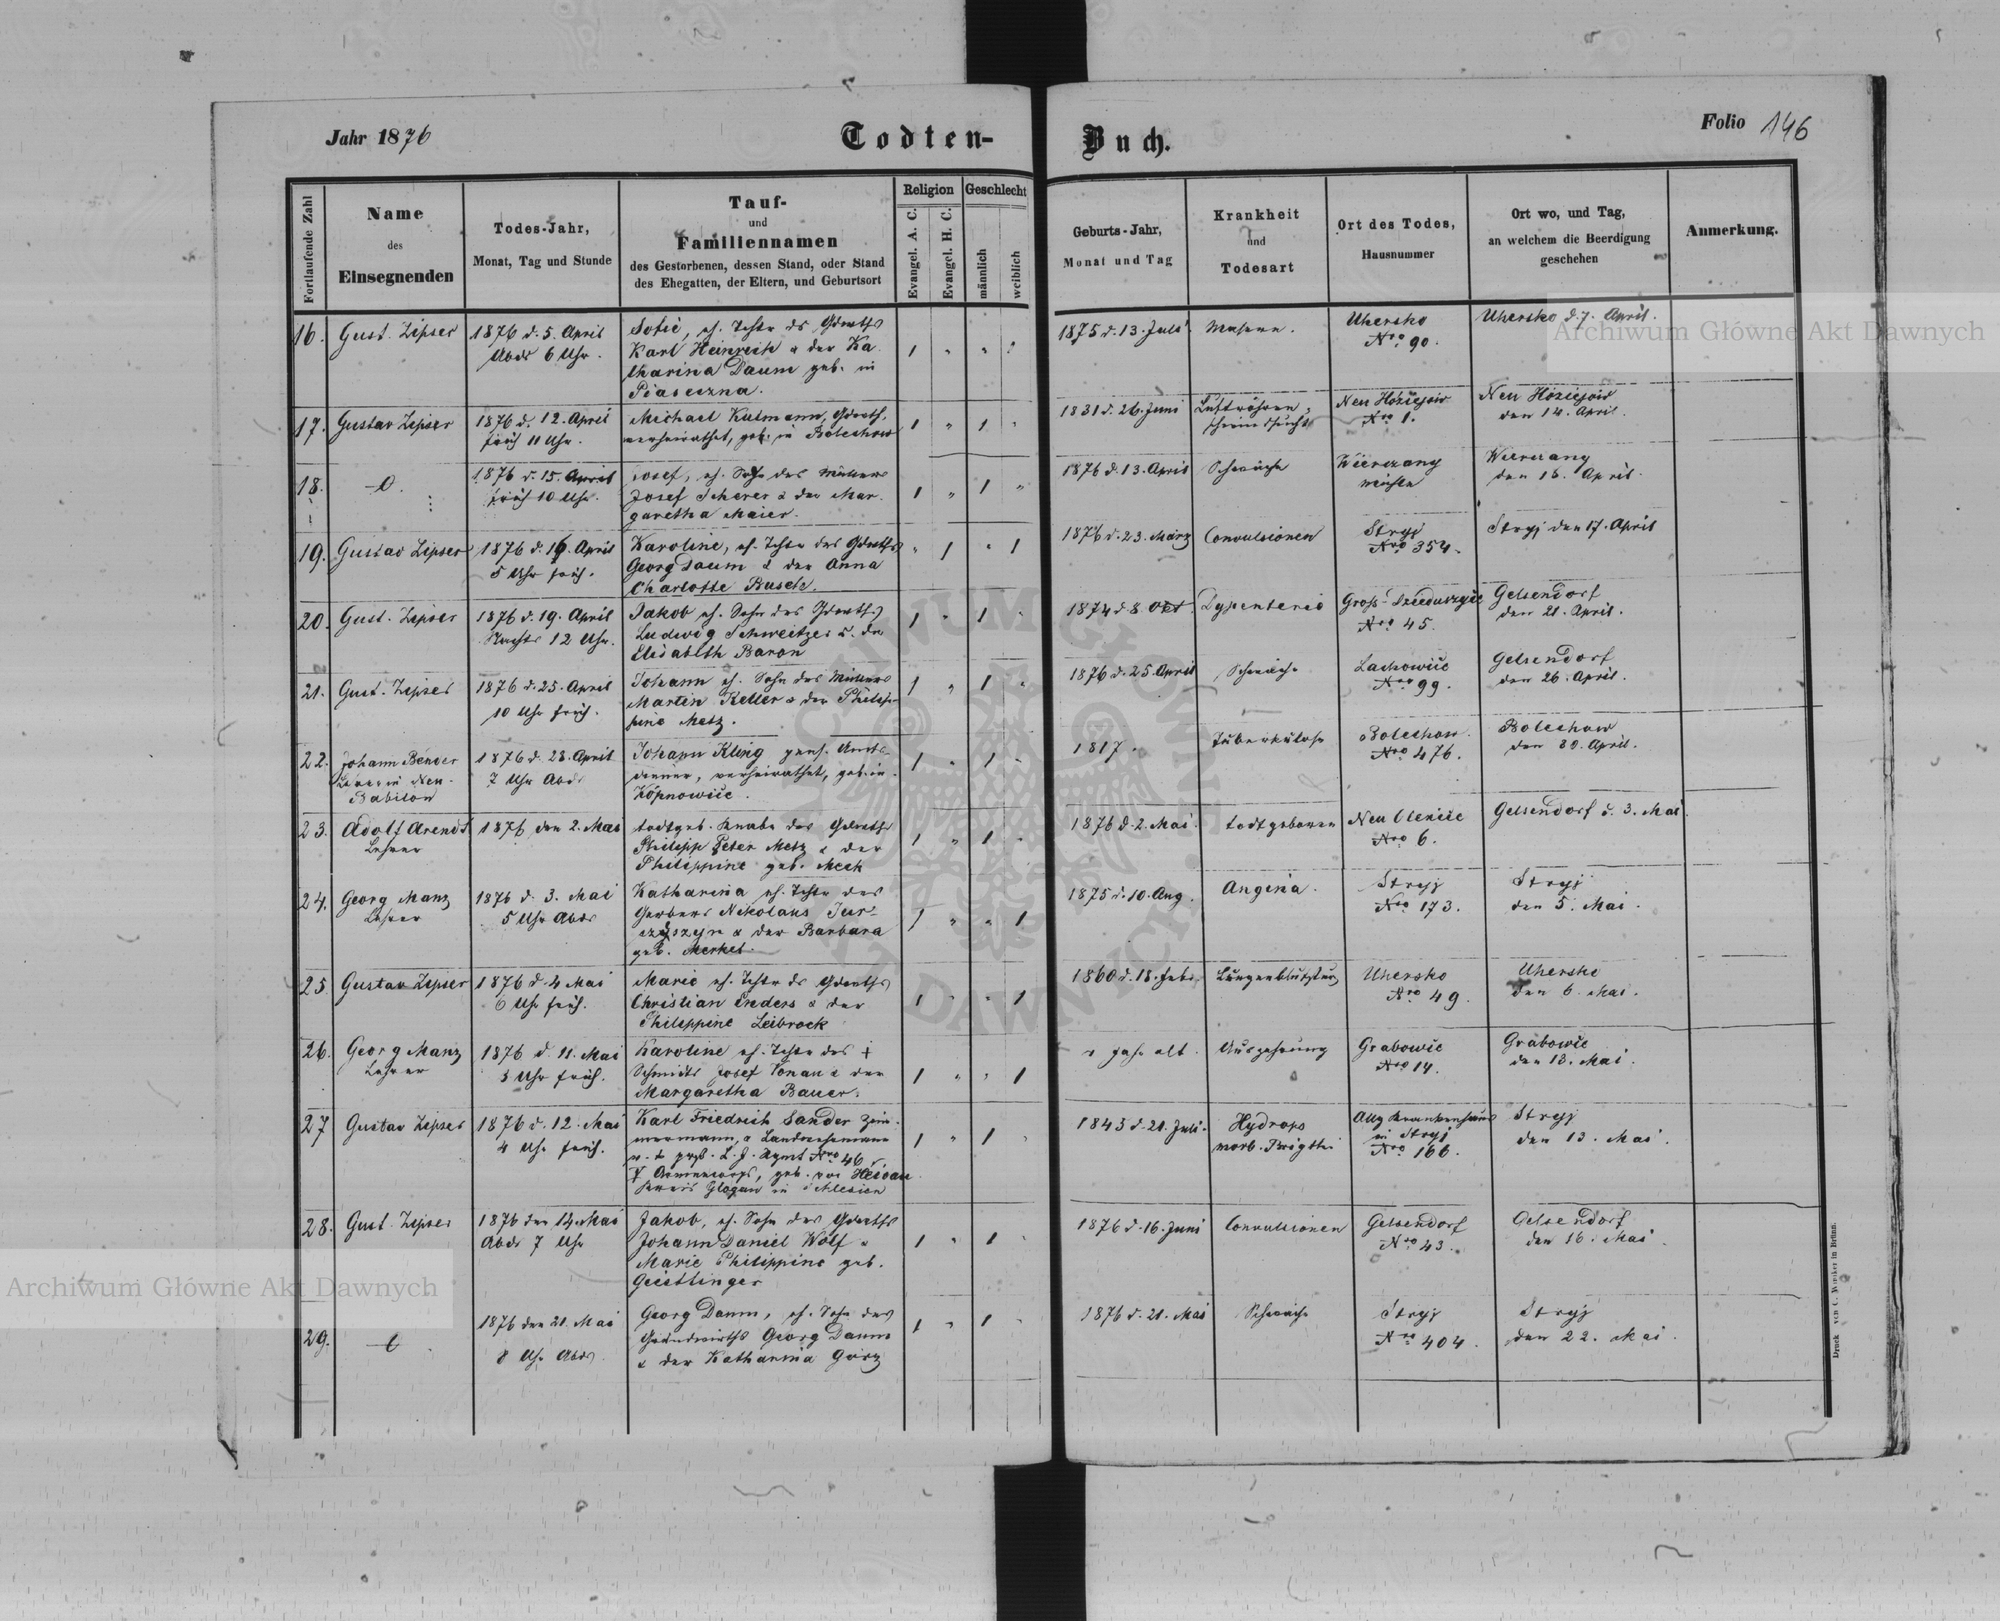 Jahr 1876
Todten-
Buch.
Folio 146
Fortlaufende Zahl
Name
des
Einsegnenden
Todes-Jahr,
Monat, Tag und Stunde
Tauf-
und
Familiennamen
des Gestorbenen, dessen Stand, oder Stand
des Ehegatten, der Eltern, und Geburtsort
Religion
Evangel. A. C.
Evangel. H. C.
Geschlecht
männlich
weiblich
Geburts-Jahr,
Monat und Tag
Krankheit
und
Todesart
Ort des Todes,
Hausnummer
Ort wo, und Tag,
an welchem die Beerdigung
geschehen
Anmerkung.
16. Gust. Zipser
1876 d. 5. April
Abds 6 Uhr.
Sofie, eh. Tchtr ds Gdwths
Karl Heinrich & der Ka
tharina Daum geb. in
Piaseczna.
1 " " 1
1875 d. 13. Juli
Masern.
Uhersko
Nro 90.
Uhersko d. 7. April.
17. Gustav Zipser
1876 d. 12. April
früh 11 Uhr.
Michael Kulmann, Gdwth,
verheirathet, geb. in Bolechow
1 " 1 "
1831 d. 26. Juni
Luftröhren-
schwindsucht
Neu Hoziejow
Nro 1.
Neu Hoziejow
den 14. April.
18. -0.
1876 d. 15. April
früh 10 Uhr.
Josef, eh. Sohn des Müllers
Josef Scherer & der Mar-
garetha Maier.
1 " 1 "
1876 d. 13. April
Schwäche
Wierczany
den 16. April.
19. Gustav Zipser
1876 d. 16. April
5 Uhr früh.
Karoline, eh. Tchtr des Gdwths
Georg Daum & der Anna
Charlotte Busch.
" 1 " 1
1876 d. 23. März
Convulsionen
Stryj
Nro 354.
Stryj den 17. April
20. Gust. Zipser
1876 d. 19. April
Nachts 12 Uhr.
Jakob eh. Sohn des Gdwths
Ludwig Schweitzer u. der
Elisabeth Baron
1 " 1 "
1874 d. 8. Okt.
Dysenterie
Gross-Dzieduszyce
Nro 45.
Gelsendorf
den 21. April.
21. Gust. Zipser
1876 d. 25. April
10 Uhr früh.
Johann eh. Sohn des Müllers
Martin Keller & der Philip-
pine Metz.
1 " 1 "
1876 d. 25. April
Schwäche
Lachowice
Nro 99.
Gelsendorf
den 26. April.
22. Johann Bender
Lehrer in Neu-
Babilon
1876 d. 28. April
7 Uhr Abds
Johann Kling pens. Amts-
diener, verheirathet, geb. in
1 " 1 "
1817.
Tuberkulose
Bolechow.
Nro 476.
Bolechow
den 30. April.
23. Adolf Arendt
Lehrer
1876 den 2. Mai
todtgeb. Knabe des Gdwths
Philipp Peter Metz & der
Philippine geb. Mech
1 " 1 "
1876 d. 2. Mai.
todtgeboren
Neu Oleniec
Nro 6.
Gelsendorf d. 3. Mai.
24. Georg Manz
Lehrer
1876 d. 3. Mai
5 Uhr Abds
Katharina eh. Tchtr des
Gerbers Nikolaus Jur-
czyszyn & der Barbara
geb. Merkel.
1 " " 1
1875 d. 10. Aug.
Angina.
Stryj
Nro 173.
Stryj
den 5. Mai.
25. Gustav Zipser
1876 d. 4 Mai
6 Uhr früh.
Marie eh. Tchtr ds Gdwths
Christian Enders & der
Philippine Leibrock
1 " " 1
1860 d. 18. Febr.
Lungenblutsturz
Uhersko
Nro 49.
Uhersko
den 6. Mai.
26. Georg Manz
Lehrer
1876 d. 11. Mai
3 Uhr früh.
Karoline eh. Tchtr des †
Schmieds Josef Konan & der
Margaretha Bauer.
1 " " 1
Jahr alt.
Auszehrung
Grabowic
Nro 14.
Grabowic
den 13. Mai.
27 Gustav Zipser
1876 d. 12. Mai
4 Uhr früh.
Karl Friedrich Sander Zim-
mermann, & Landwehrmann
Nro 46
Armeecorps, geb.
Kreis Glogau in Schlesien
1 " 1 "
1843 d. 21. Juli.
Hydrops
morb. Brigthi
Allg Krankenhaus
in Stryj
Nro 166.
Stryj
den 13. Mai.
28. Gust. Zipser
1876 den 14 Mai
Abds 7 Uhr
Jakob, eh. Sohn des Gdwths
Johann Daniel Wolf &
Marie Philippine geb.
Geistlinger
1 " 1 "
1876 d. 16. Juni
Convulsionen
Gelsendorf
Nro 43.
Gelsendorf
den 16. Mai.
29. -0.
1876 den 21. Mai
8 Uhr Abds.
Georg Daum, eh. Sohn des
Grundwirths Georg Daum
& der Katharina Görz
1 " 1 "
1876 d. 21. Mai
Schwäche
Stryj
Nro 404.
Stryj
den 22. Mai.
Archiwum Główne Akt Dawnych
Archiwum Główne Akt Dawnych
ARCHIWUM GŁÓWNE AKT DAWNYCH